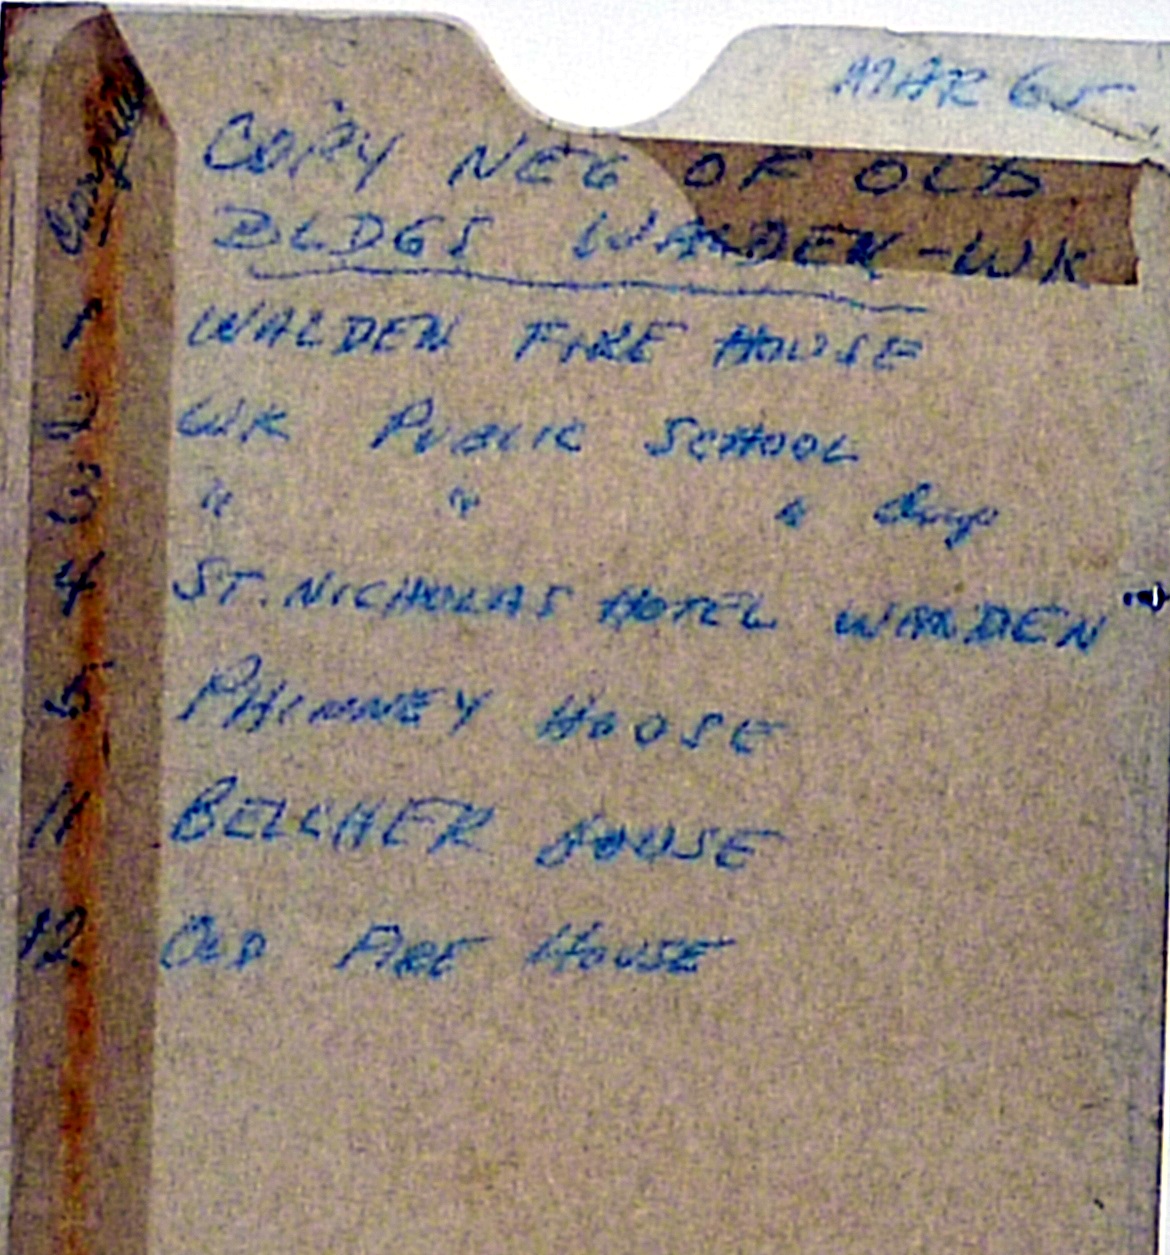 MAR 65
COPY NEG OF OLD
BLDGS WALDEN-WK
1 WALDEN FIRE HOUSE
2 WK PUBLIC SCHOOL
3 " " " Dup
4 ST. NICHOLAS HOTEL WALDEN
5 PHINNEY HOUSE
11 BELCHER HOUSE
12 OLD FIRE HOUSE